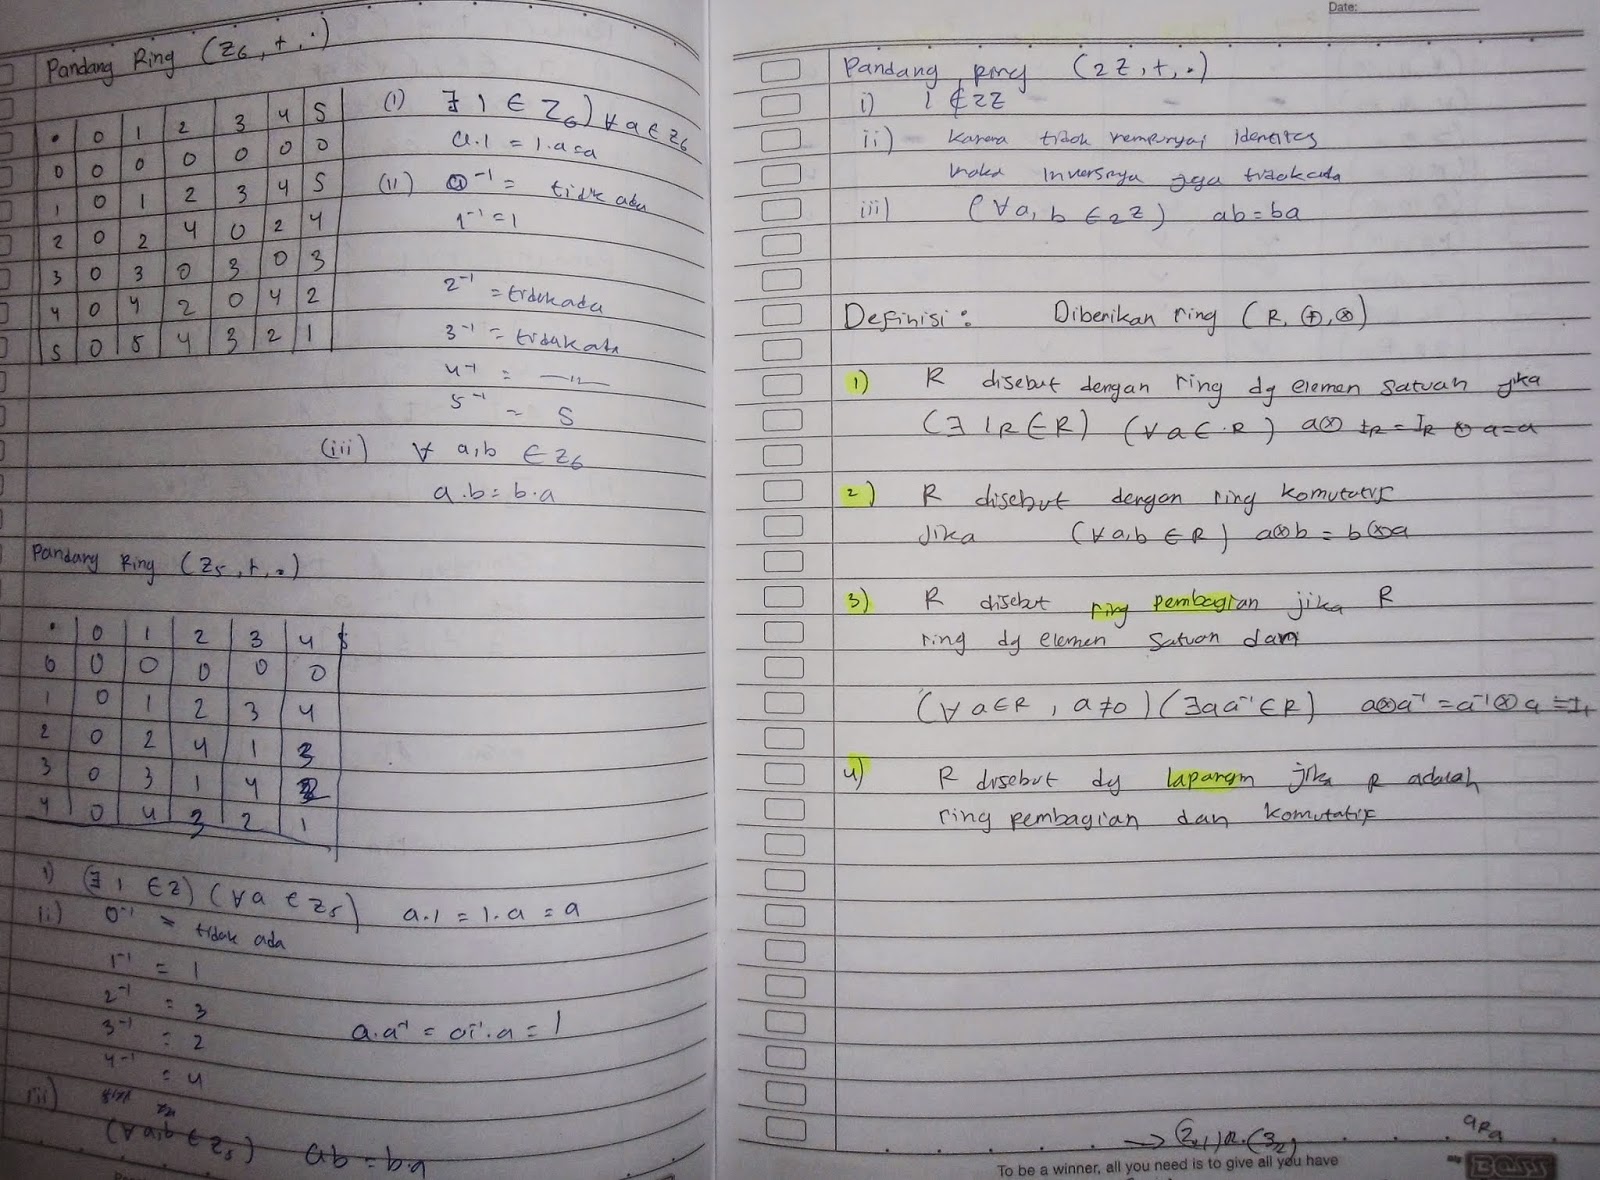 Pandang Ring (Z6, +, ·)
· 0 1 2 3 4 5
0 0 0 0 0 0 0
1 0 1 2 3 4 5
2 0 2 4 0 2 4
3 0 3 0 3 0 3
4 0 4 2 0 4 2
5 0 5 4 3 2 1
(i) ∃ 1 ∈ Z6) ∀ a ∈ Z6
a.1 = 1.a = a
(ii) 0⁻¹ = tidak ada
1⁻¹ = 1
2⁻¹ = tidak ada
3⁻¹ = tidak ada
4⁻¹ = —〃—
5⁻¹ = 5
(iii) ∀ a,b ∈ Z6
a.b = b.a
Pandang Ring (Z5, +, ·)
· 0 1 2 3 4
0 0 0 0 0 0
1 0 1 2 3 4
2 0 2 4 1 3
3 0 3 1 4 2
4 0 4 3 2 1
i) (∃ 1 ∈ Z) (∀a ∈ Z5) a.1 = 1.a = a
ii) 0⁻¹ = tidak ada
1⁻¹ = 1
2⁻¹ = 3
3⁻¹ = 2
a.a⁻¹ = a⁻¹.a = 1
4⁻¹ = 4
iii)
(∀ a,b ∈ Z5) ab = b.a
Date:
Pandang ring (2Z, +, ·)
i) 1 ∉ 2Z
ii) Karena tidak mempunyai identitas
maka inversnya juga tidak ada
iii) (∀ a, b ∈ 2Z) ab = ba
Definisi : Diberikan ring (R, ⊕, ⊗)
1) R disebut dengan ring dg elemen satuan jika
(∃ 1R ∈ R) (∀ a ∈ R) a⊗ 1R = 1R ⊗ a = a
2) R disebut dengan ring komutatif
Jika (∀ a,b ∈ R) a⊗b = b⊗a
3) R disebut ring pembagian jika R
ring dg elemen satuan dan
(∀ a∈R, a≠0) (∃a a⁻¹ ∈ R) a⊗a⁻¹ = a⁻¹⊗a = 1
4) R disebut dg lapangan jika R adalah
ring pembagian dan komutatif
aRa
To be a winner, all you need is to give all you have
BOSS